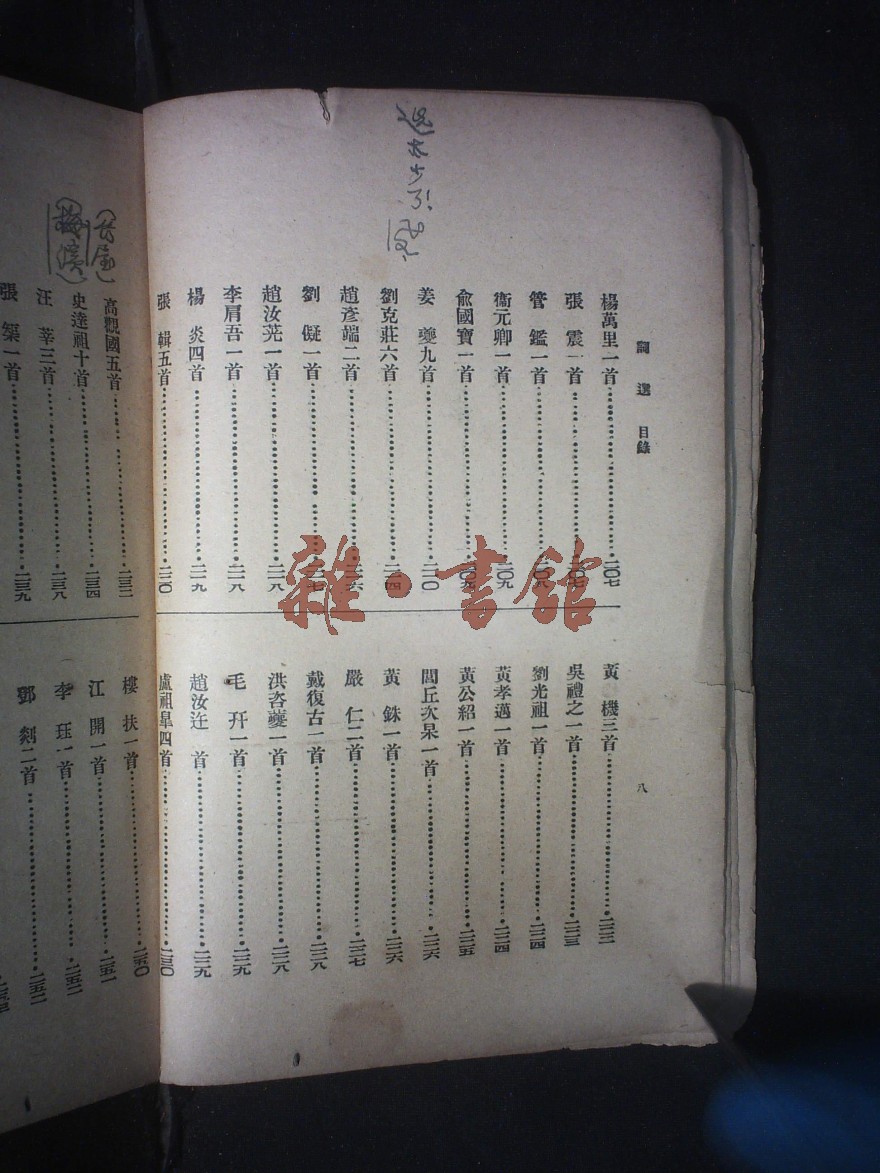 詞選 目錄
八
楊萬里一首 二〇七
張震一首 二〇七
管鑑一首 二〇八
衞元卿一首 二〇九
俞國寶一首 二〇九
姜夔九首 二一〇
劉克莊六首 二一四
趙彥端二首 二一六
劉儗一首 二一七
趙汝茪一首 二一八
李肩吾一首 二一八
楊炎四首 二一九
張輯五首 二二〇
黃機三首 二二二
吳禮之一首 二二三
劉光祖一首 二二四
黃孝邁一首 二二四
黃公紹一首 二二五
閭丘次杲一首 二二六
黃銖一首 二二六
嚴仁二首 二二七
戴復古一首 二二八
洪咨夔一首 二二八
毛幵一首 二二九
趙汝迕 首 二二九
盧祖皐四首 二三〇
高觀國五首 二三二
史達祖十首 二三四
汪莘三首 二三八
張榘一首 二三九
樓扶一首 二五〇
江開一首 二五一
李珏一首 二五二
鄧剡二首 二五二
雜·書館